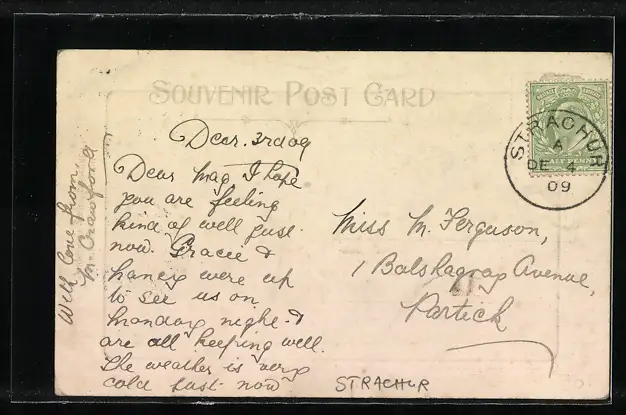 SOUVENIR POST CARD
Decr. 3rd 09
Dear Mag I hope
you are feeling
kind of well just
now. Gracie &
Nancy were up
to see us on
Monday night &
are all keeping well.
The weather is very
cold just now
With love from
M. Crawford
Miss M. Ferguson,
1 Balshagray Avenue,
Partick
STRACHUR
STRACHUR
A
DE 4
09
HALFPENNY